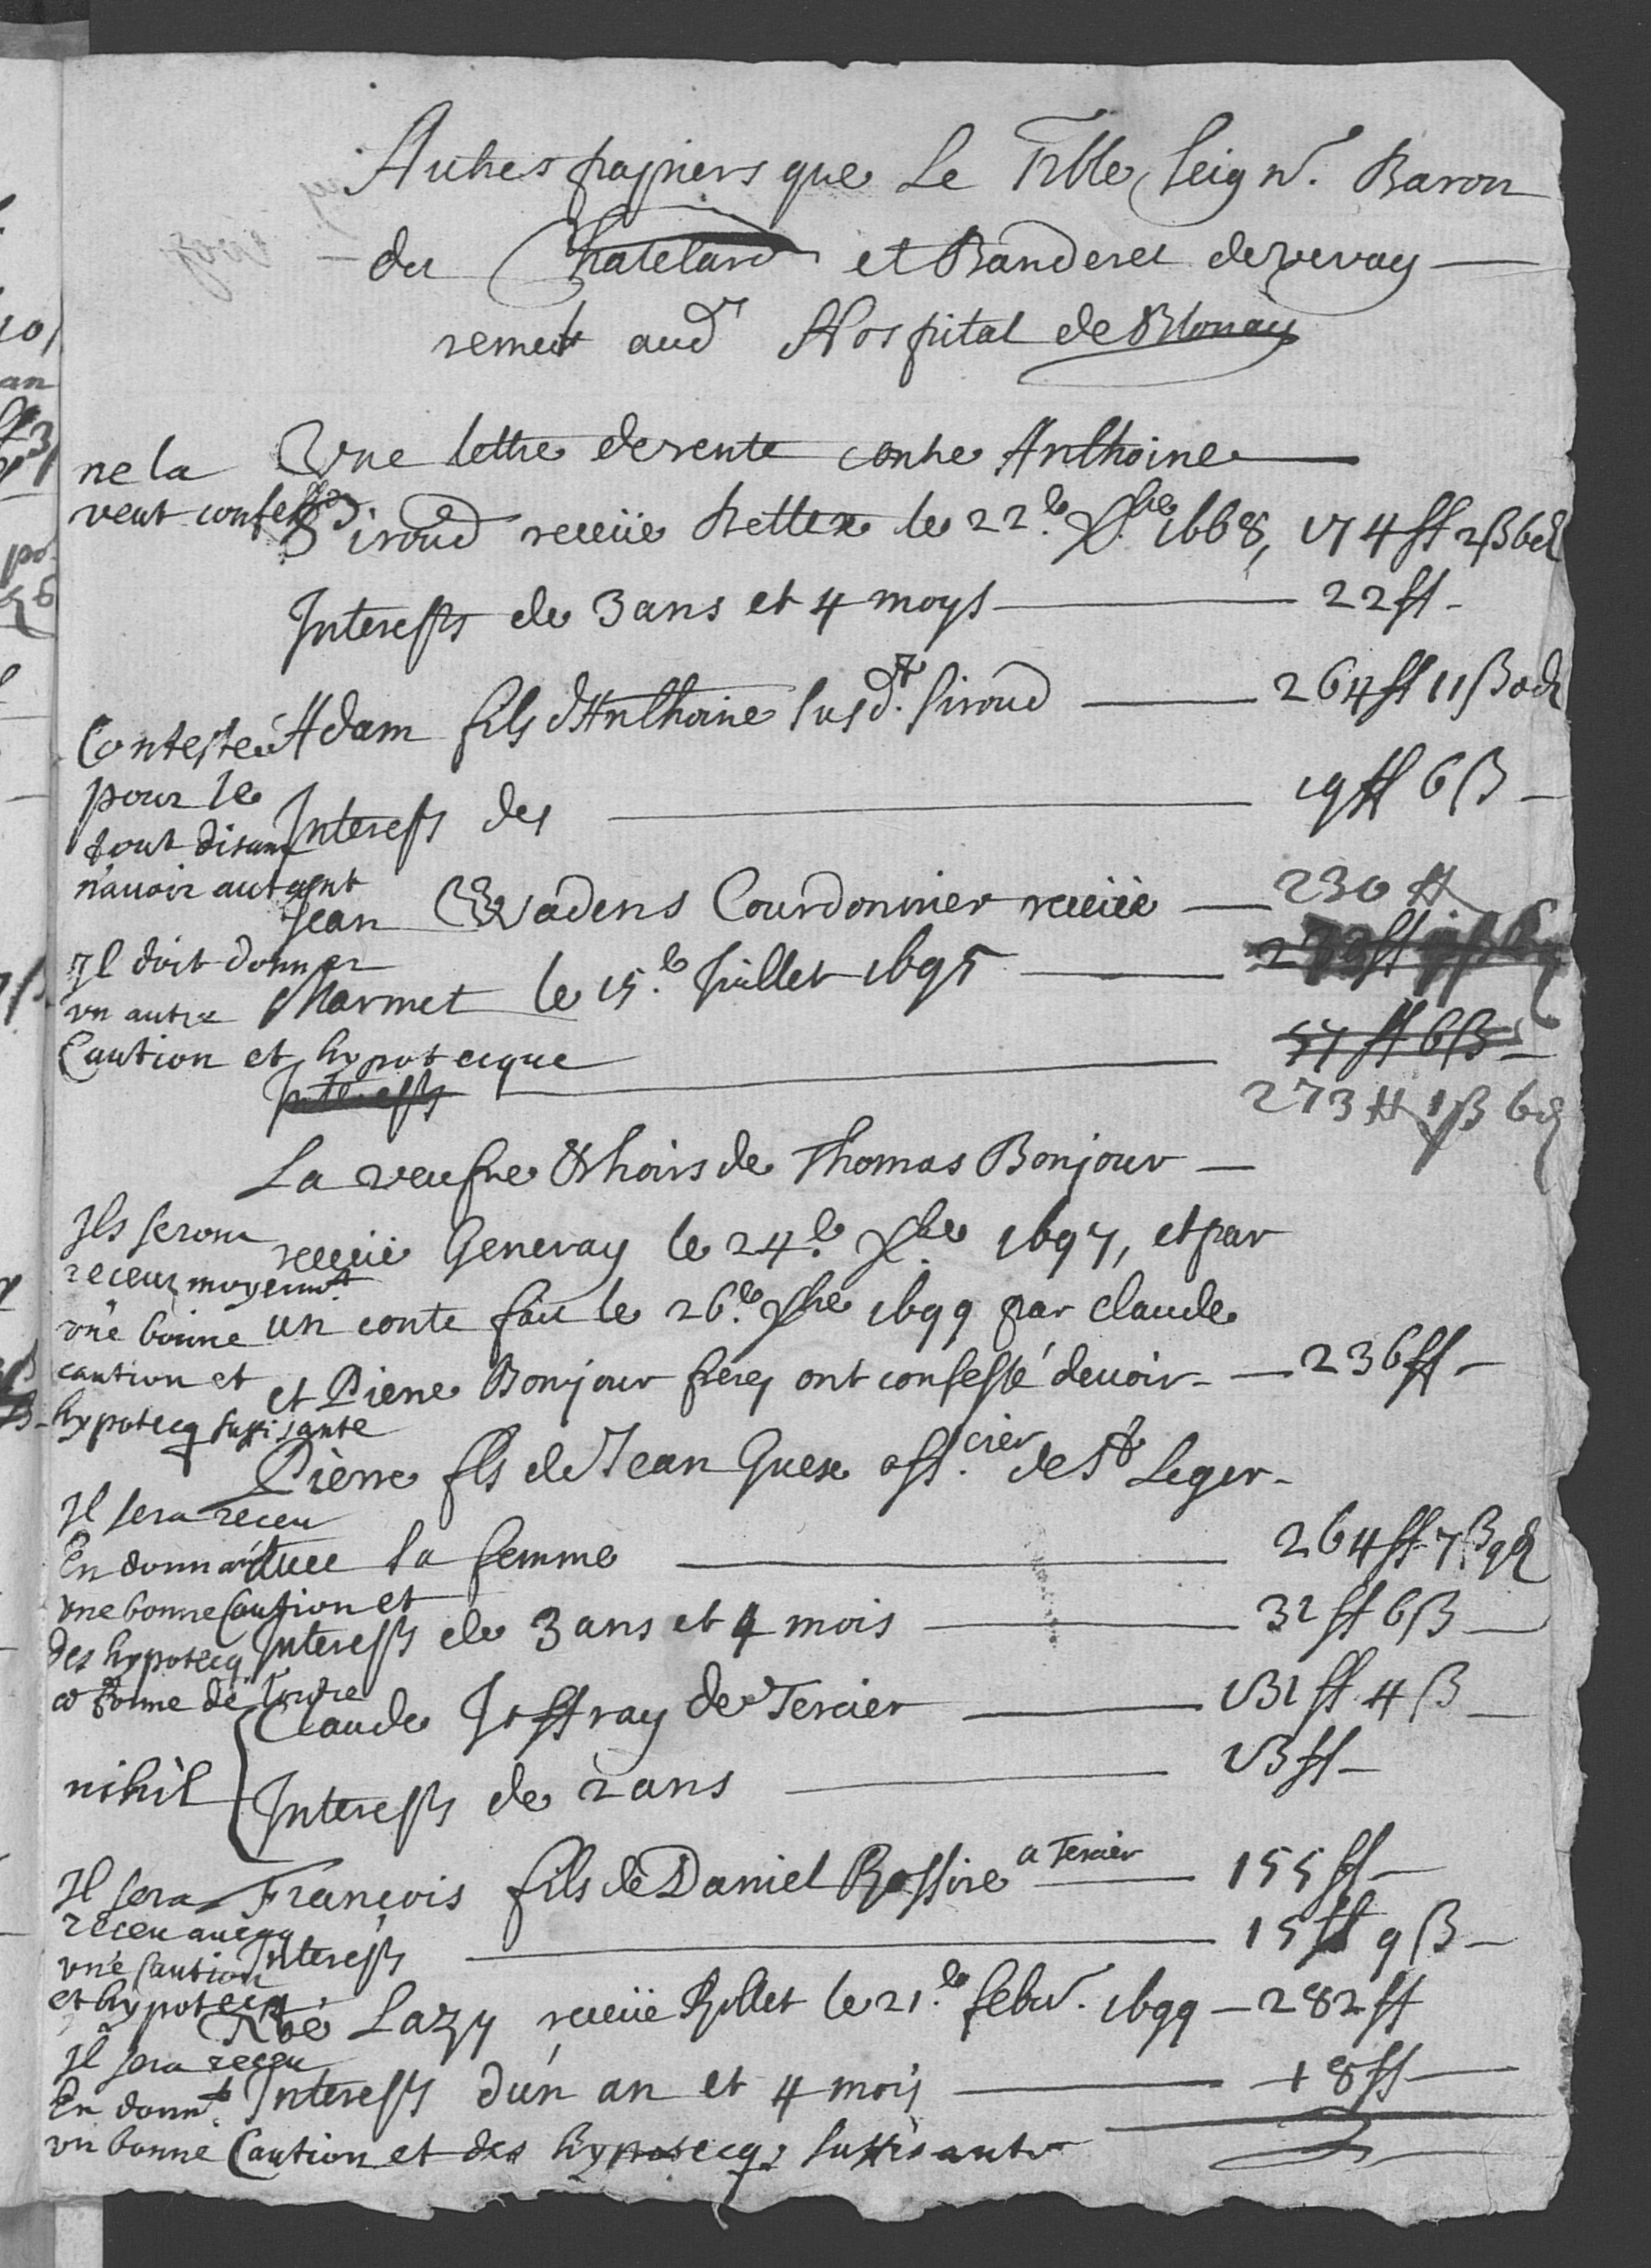 Autres papiers que Le Tble Seignr. Baron
du Chatelard et Banderet de vevay
remet aud Hospital de Blonay
Une lettre de rente contre Anthoine
ne la
veut confesser.
Siroud receüe Rettex le 22e. Xbre 1668, 174 ff 2 ß 6 d
Interests de 3 ans et 4 moys 22 ff
Adam fils d'Anthoine susdt. Siroud 264 ff 11 ß d
Contestée
pour le
tout disant
n'avoir autant
Interests des 19 ff 6 ß
Jean Wadens Courdonnier receüe 230 ff
Marmet le 15e. Juillet 1695
Il doit donner
un autre
Caution et hypotecque
57 ff 6 ß
Interests 273 ff 1 ß 6 d
La veufve & hoirs de Thomas Bonjour
receüe Genevay le 24e. Xbre 1697, et par
un conte fait le 26e. Xbre 1699 par Claude
et Pierre Bonjour freres ont confessé devoir 236 ff
Ils seront
receuz moyennt
une bonne
caution et
hypotecq suffisante
Pierre fils de Jean Guex off.cier de St Leger
avec sa femme 264 ff 7 ß 9 d
Interests de 3 ans et 4 mois 32 ff 6 ß
Il sera receu
En donnant
une bonne Caution et
des hypotecq
Claude Joffray de Tercier 131 ff 4 ß
nihil
Interests de 2 ans 13 ff
François fils de Daniel Rossire a Tercier 155 ff
Interests 15 ff 9 ß
Il sera
receu avecq
une caution
et hypotecq.
Noé Lazy receüe Rollet le 21e. febvr. 1699 282 ff
Interests d'un an et 4 mois 18 ff
Il sera receu
En donnt.
un bonne Caution et des hypotecqs suffisante